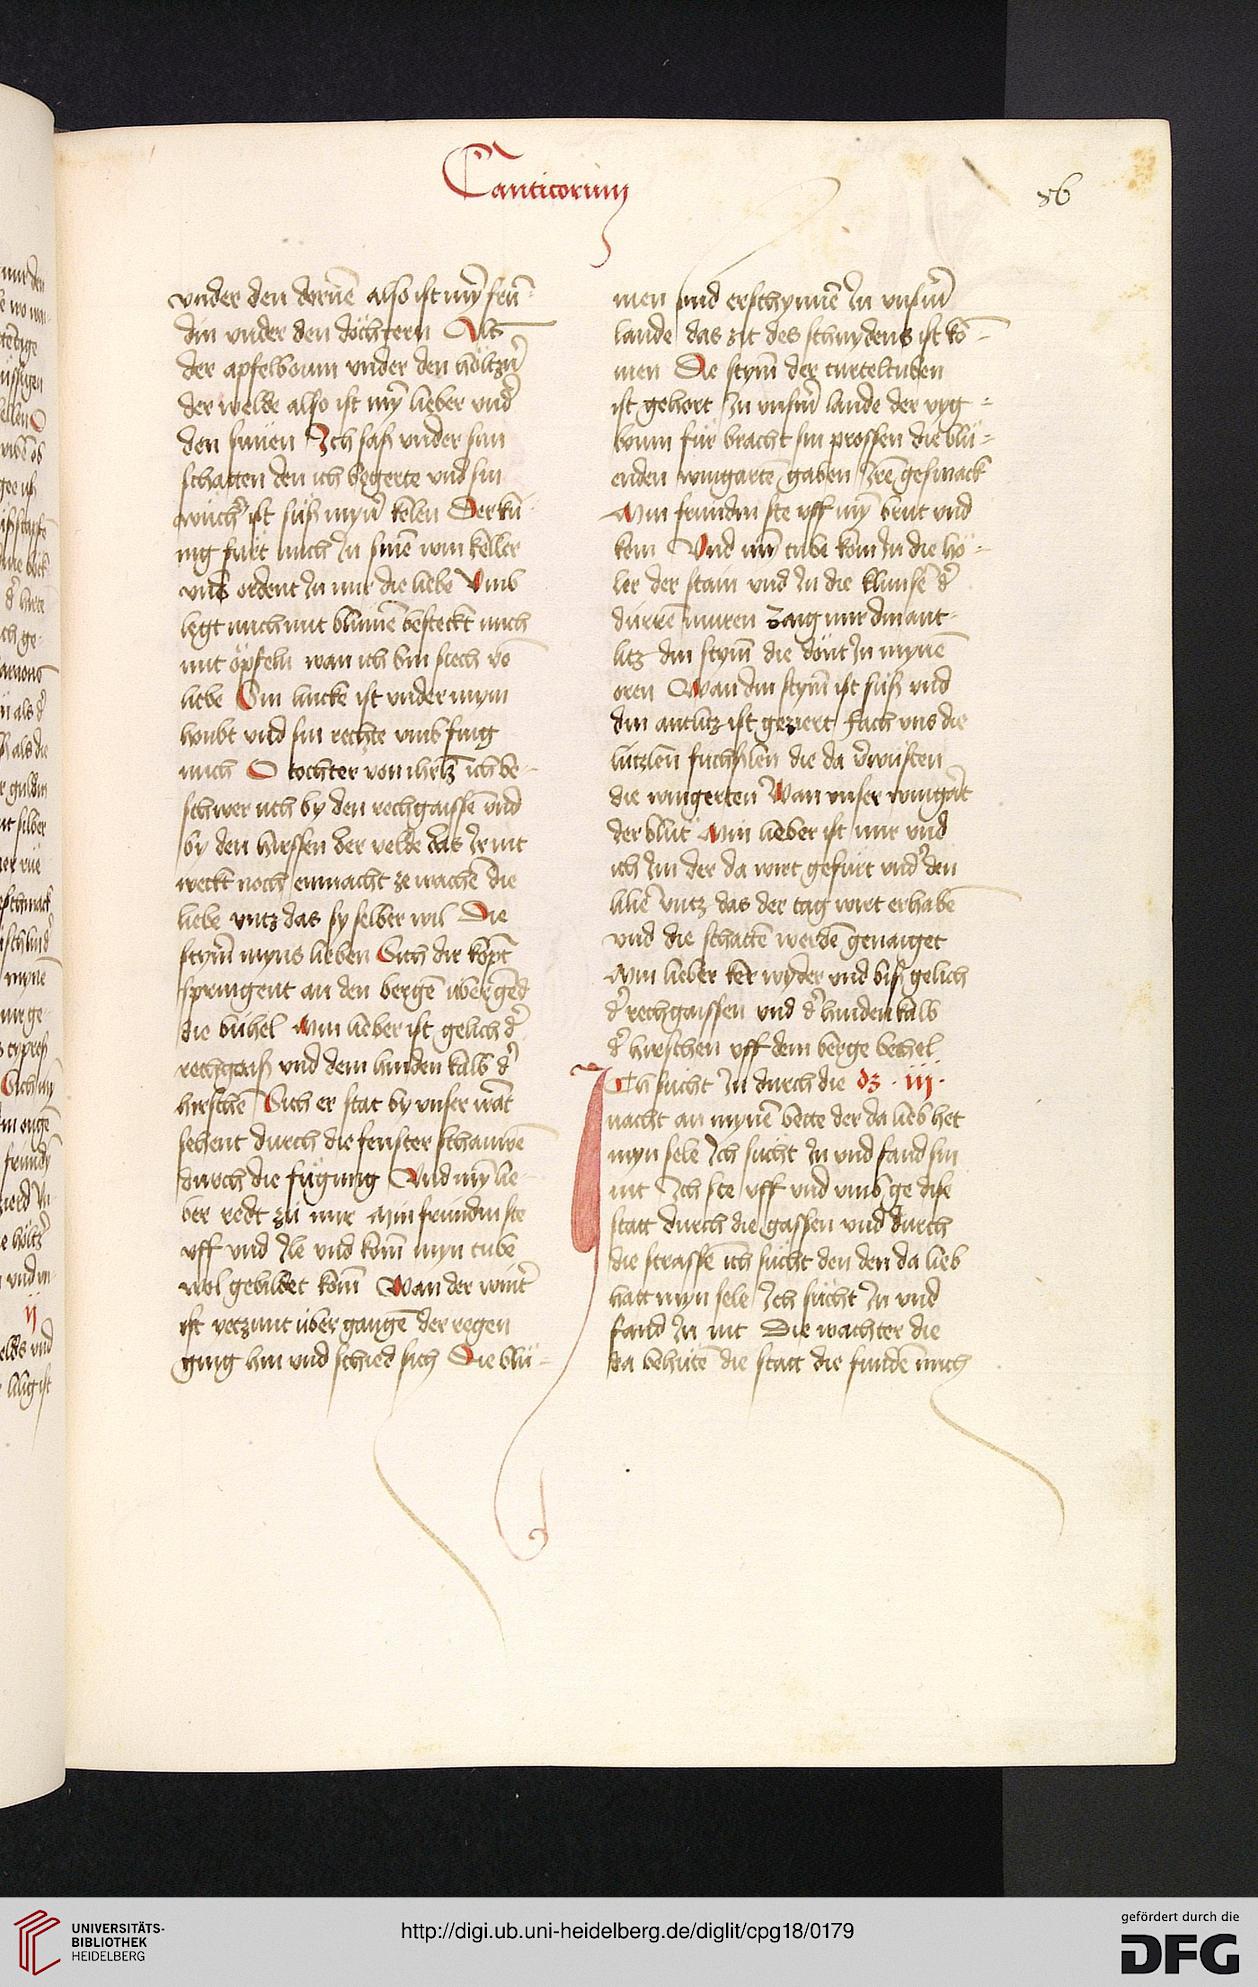 Canticorum
86
vnder den dornē also ist mȳ frū-
din vnder den döchtern Als
der apfelboum vnder den höltzn̄
der welde also ist mȳ lieber vnd'
den sunen Ich sass vnder sim
schatten den ich begerte vnd sin
wuch' ist süss myn̄ kelen Der kü
nig furt mich In sinē win keller
vnd ordent In mir die liebe Vmb
legt mich mit blumē besteckt mich
mit öpfeln wan ich bin siech vō
liebe Sin lincke ist vnder mym
houbt vnd sin rechte vmb fing
mich O tochter von ihrlm̄ ich be-
schwer uch by den rechgaissē vnd
by den hirssen der velde das Ir nit
weckt noch enmacht ze wachē die
liebe vntz das sy selber wil Die
stym̄ myns lieben Sich dir kopt
springent an den bergē übergēd
die bühel Min lieber ist gelich d'
rechgaiss vnd dem hinden kalb d'
hirschē Sich er stat by vnser wāt
sehent durch die fenster schauwē
durch die fügung Vnd mȳ lie-
ber redt zü mir Min fründin ste
uff vnd Ile vnd kom̄ myn tube
wol gebildet kom̄ Wan der wint'
ist yetzunt über gangē der regen
ging hin vnd schied sich Die blü-
men sind erschynnē In vnsm̄
lande das zit des schnydens ist kō-
men Die stym̄ der turteltuben
ist gehort In vnsm̄ lande der vyg-
boum für bracht sin prossen die blü-
enden wingartē gaben Iren gesmack
Min fründin ste uff mȳ brut vnd
kom Vnd mȳ tube kom In die hö-
ler der stain vnd In die klumsē d'
dürrē muren Zaig mir din ant-
litz din stym̄ die dönt In mynē
oren Wan din stym̄ ist süss vnd
din antlitz ist geziert Fach vns die
lützlen füchslen die da v'wüsten
die wingerten Wan vnser wingart
der blüt Min lieber ist mir vnd
ich Im der da wirt gefürt vnd' den
lilie vntz das der tag wirt erhabē
vnd die schattē werdē genaiget
Min lieber ker wyder vnd biss gelich
d' rechgaissen vnd d' hinden kalb
d' hirschen uff dem berge bethel
ICh sücht In durch die dz · iij ·
nacht an mynē bette der da lieb het
myn sele Ich sücht In vnd fand sin
nit Ich ste uff vnd vmb ge dise
statt durch die gassen vnd durch
die strassē ich sücht den den da lieb
hatt myn sele Ich sücht In vnd
fand In nit Die wachter die
da behütē die statt die fundē mich
UNIVERSITÄTS-
BIBLIOTHEK
HEIDELBERG
http://digi.ub.uni-heidelberg.de/diglit/cpg18/0179
gefördert durch die
DFG